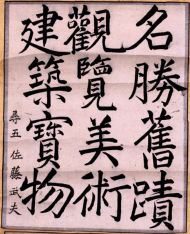 名勝舊蹟
觀覽美術
建築寶物
尋五 佐藤武夫